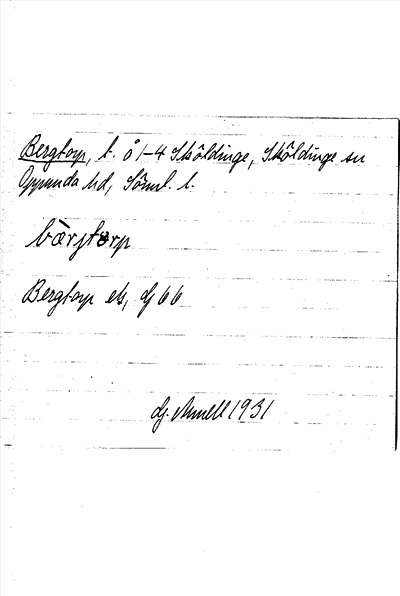 Bergtorp, t. å 1-4 Sköldinge, Sköldinge sn
Oppunda hd, Söml. l.
bærjtɒrp
Bergtorp ek, Gj 66
Gj. Annell 1931